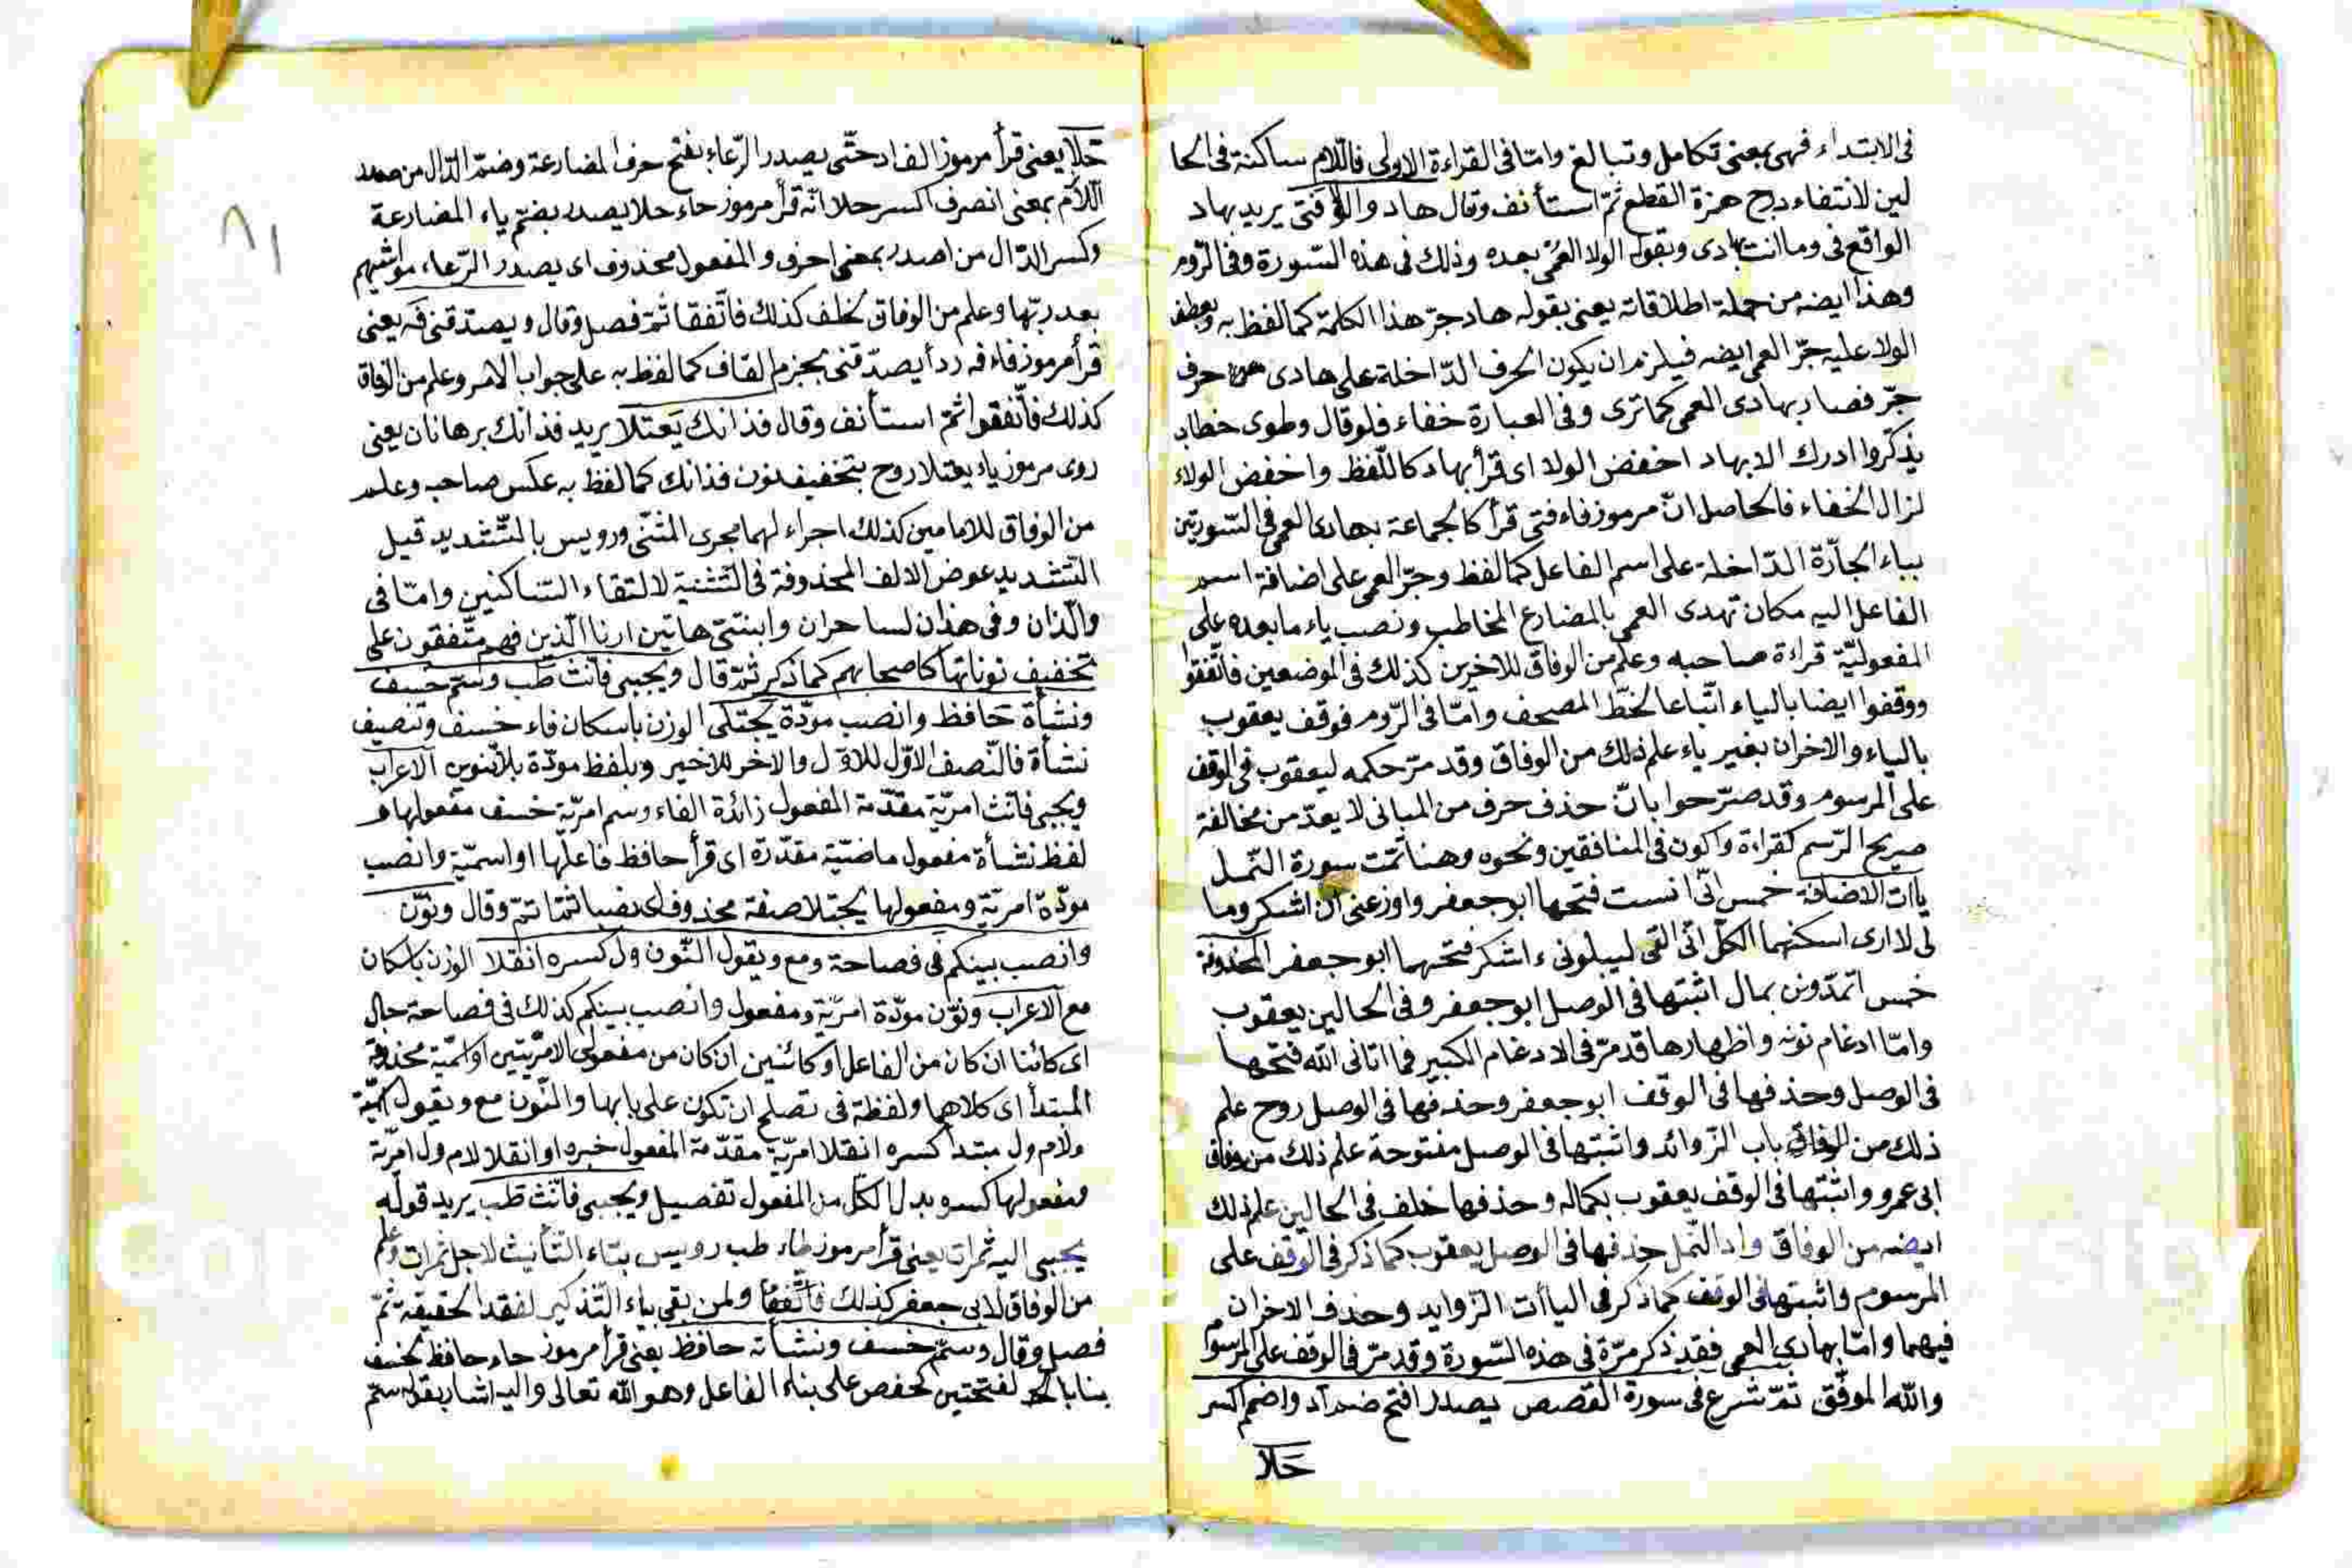 فى الابتداء فهى بمعنى تكامل وتبالغ وامّا فى القراءة الاولى فاللّام ساكنة فى الحا
لين لانتفاء درج همزة القطع ثمّ استأنف وقال هاد والولا فتى يريد بهاد
الواقع فى وما انت بهادى وبقوله الولا العُمى بعده وذلك فى هذه السّورة وفى الرّوم
وهذا ايضه من جملة اطلاقاته يعنى بقوله هاد جرّ هذا الكلمة كما لفظ به وبعطف
الولا عليه جرّ العمى ايضه فيلزم ان يكون الحرف الدّاخلة على هادى حرف
جرّ فصار بهادى العمى كما ترى وفى العبارة خفاء فلو قال وطوى خطاب
يذكّروا ادرك الابهاد اخفض الولا اى قرأ بهاد كاللّفظ واخفض الولاء
لزال الخفاء فالحاصل انّ مرموز فاء فتى قرأ كالجماعة بهادى العمى فى السّورتين
بباء الجارّة الدّاخلة على اسم الفاعل كما لفظ وجرّ العمى على اضافة اسم
الفاعل اليه مكان تهدى العمى بالمضارع المخاطب ونصب ياء ما بعده على
المفعوليّة قراءة صاحبه وعلم من الوفاق للاخرين كذلك فى الموضعين فاتّفقوا
ووقفوا ايضا بالياء اتّباعا لخطّ المصحف وامّا فى الرّوم فوقف يعقوب
بالياء والاخران بغير ياء علم ذلك من الوفاق وقد مرّ حكمه ليعقوب فى الوقف
على المرسوم وقد صرّحوا بانّ حذف حرف من المبانى لا يعدّ من مخالفة
صريح الرّسم كقراءة واكون فى المنافقين ونحوه وهنا تمّت سورة النّمل
ياآت الاضافة خمس انّى انست فتحها ابو جعفر واوزعنى ان اشكر وما
لى لا ارى اسكنهما الكلّ انّى القى ليبلونىء اشكر فتحهما ابو جعفر المحذوفة
خمس اتمدّونن بمال اثبتها فى الوصل ابو جعفر وفى الحالين يعقوب
وامّا ادغام نونه واظهارها قد مرّ فى الادغام الكبير فما اتانى اللّه فتحها
فى الوصل وحذفها فى الوقف ابو جعفر وحذفها فى الوصل روح علم
ذلك من الوفاق باب الزّوائد واثبتها فى الوصل مفتوحة علم ذلك من وفاق
ابى عمرو واثبتها فى الوقف يعقوب بكماله وحذفها خلف فى الحالين علم ذلك
ايضه من الوفاق واد النّمل حذفها فى الوصل يعقوب كما ذكر فى الوقف على
المرسوم واثبتها فى الوقف كما ذكر فى الياآت الزّوايد وحذف الاخران
فيهما وامّا بهادى العمى فقد ذكر مرّة فى هذه السّورة وقد مرّ فى الوقف على المرسوم
واللّه الموفّق ثمّ شرع فى سورة القصص يصدر افتح ضم اد واضمم اكسر
حَلا
حَلا يعنى قرأ مرموز الف اد حتّى يصدر الرّعاء بفتح حرف المضارعة وضمّ الدّال من صدر
اللّام بمعنى انصرف اكسر حلا انّه قرأ مرموز حاء حلا يصدر بضمّ ياء المضارعة
وكسر الدّال من اصدر بمعنى احرف والمفعول محذوف اى يصدر الرّعاء مواشيهم
بعد ربّها وعلم من الوفاق لخلف كذلك فاتّفقا ثمّ فصل وقال ويصدّقنى فه يعنى
قرأ مرموز فاء فه ردأ يصدّقنى بجزم القاف كما لفظ به على جواب الامر وعلم من الوفاق
كذلك فاتّفقوا ثمّ استأنف وقال فذانك يَعتلا يريد فذانك برهانان يعنى
روى مرموز ياء يعتلا روح بتخفيف نون فذانك كما لفظ به عكس صاحبه وعلم
من الوفاق للامامين كذلك اجراء لهما مجرى المثنّى ورويس بالتّشديد قيل
التّشديد عوض الالف المحذوفة فى التّثنية لالتقاء السّاكنين وامّا فى
والّذان وفى هذان لساحران وابنتىّ هاتين ارنا الّذين فهم متّفقون على
تخفيف نوناتها كاصحابهم كما ذكر ثمّ قال ويجبى فانّث طب وسمّ خسف
ونشأة حَافظ وانصب مودّة يجتلى الوزن باسكان فاء خسف وتنصيف
نشأة فالنّصف الاوّل للاوّل والاخر للاخير وبلفظ مودّة بلا تنوين الاعراب
ويجبى فانّث امريّة مقدّمة المفعول زائدة الفاء وسم امريّة خسف مفعولها و
لفظ نشأة مفعول ماضيّة مقدّرة اى قرأ حافظ فاعلها او اسميّة وانصب
مودّة امريّة ومفعولها يجتلا صفة محذوف اى نصبا ثمّا تمّ وقال ونوّن
وانصب بينكم فى فصاحة ومع ويقول النّون ول كسره انقلا الوزن باسكان
مع الاعراب ونوّن مودّة امريّة ومفعول وانصب بينكم كذلك فى فصاحة حال
اى كائنا ان كان من الفاعل او كائنين ان كان من مفعولى الامريّتين او اسميّة محذوفة
المبتدأ اى كلاهما ولفظة فى تصلح ان تكون على بابها والنّون مع ويقول اسميّة
ولام ول مبتدأ كسره انقلا امريّة مقدّمة المفعول خبره او انقلا لام ول امريّة
ومفعولها كسره بدل الكلّ من المفعول تفصيل ويجبى فانّث طب يريد قوله
يجبى اليه ثمرات يعنى قرأ مرموز طاء طب رويس بتاء التّأنيث لاجل ثمرات وعلم
من الوفاق لابى جعفر كذلك فاتّفقا ولمن بقى بياء التّذكير لفقد الحقيقة ثمّ
فصل وقال وسمّ خسف ونشأته حافظ يعنى قرأ مرموز حاء حافظ لخسف
بنا بالفتحتين كحفص على بناء الفاعل وهو اللّه تعالى واليه اشار بقوله سمّ